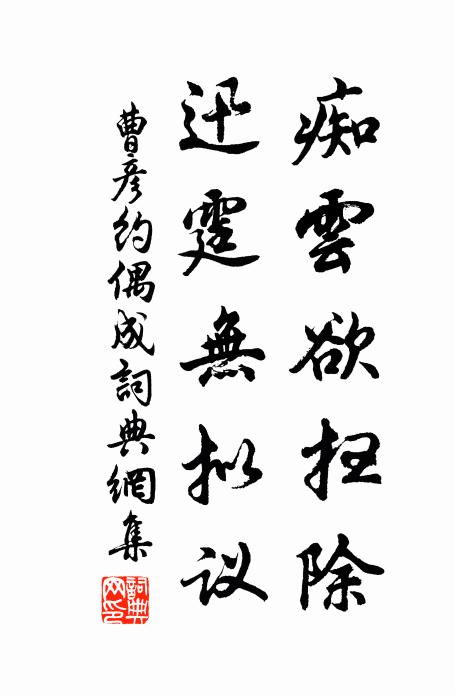 痴雲欲扫除
迅霆無拟议
曹彦約偶成詞典網集
詞典網印